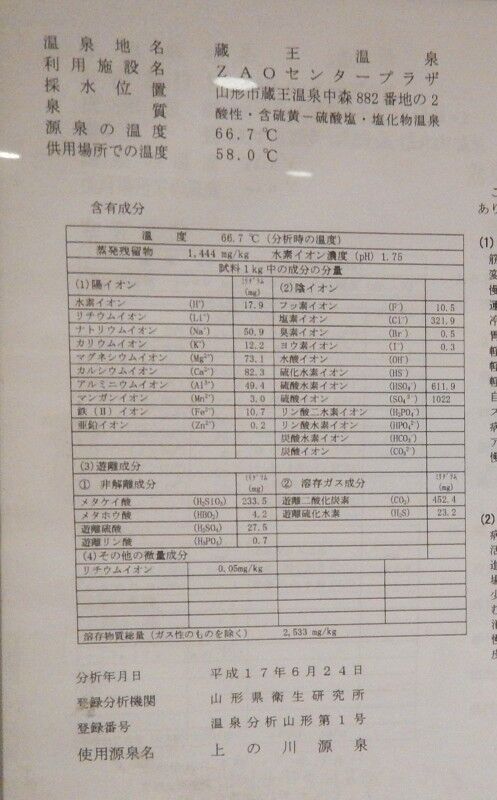 温泉地名 蔵王温泉
利用施設名 ZAOセンタープラザ
採水位置 山形市蔵王温泉中森882番地の2
泉質 酸性・含硫黄－硫酸塩・塩化物温泉
源泉の温度 66.7℃
供用場所での温度 58.0℃
含有成分
温度 66.7 ℃ (分析時の温度)
蒸発残留物 1,444 mg/kg 水素イオン濃度 (pH) 1.75
試料1kg中の成分の分量
(1)陽イオン ﾐﾘｸﾞﾗﾑ (mg) (2)陰イオン ﾐﾘｸﾞﾗﾑ (mg)
水素イオン (H⁺) 17.9 フッ素イオン (F⁻) 10.5
リチウムイオン (Li⁺) 塩素イオン (Cl⁻) 321.9
ナトリウムイオン (Na⁺) 50.9 臭素イオン (Br⁻) 0.5
カリウムイオン (K⁺) 12.2 ヨウ素イオン (I⁻) 0.3
マグネシウムイオン (Mg²⁺) 73.1 水酸イオン (OH⁻)
カルシウムイオン (Ca²⁺) 82.3 硫化水素イオン (HS⁻)
アルミニウムイオン (Al³⁺) 49.4 硫酸水素イオン (HSO₄⁻) 611.9
マンガンイオン (Mn²⁺) 3.0 硫酸イオン (SO₄²⁻) 1022
鉄(II)イオン (Fe²⁺) 10.7 リン酸二水素イオン (H₂PO₄⁻)
亜鉛イオン (Zn²⁺) 0.2 リン酸水素イオン (HPO₄²⁻)
炭酸水素イオン (HCO₃⁻)
炭酸イオン (CO₃²⁻)
(3)遊離成分
① 非解離成分 ﾐﾘｸﾞﾗﾑ (mg) ② 溶存ガス成分 ﾐﾘｸﾞﾗﾑ (mg)
メタケイ酸 (H₂SiO₃) 233.5 遊離二酸化炭素 (CO₂) 452.4
メタホウ酸 (HBO₂) 4.2 遊離硫化水素 (H₂S) 23.2
遊離硫酸 (H₂SO₄) 27.5
遊離リン酸 (H₃PO₄) 0.7
(4)その他の微量成分
リチウムイオン 0.05mg/kg
溶存物質総量(ガス性のものを除く) 2,533 mg/kg
分析年月日 平成17年6月24日
登録分析機関 山形県衛生研究所
登録番号 温泉分析山形第1号
使用源泉名 上の川源泉
(1)
(2)